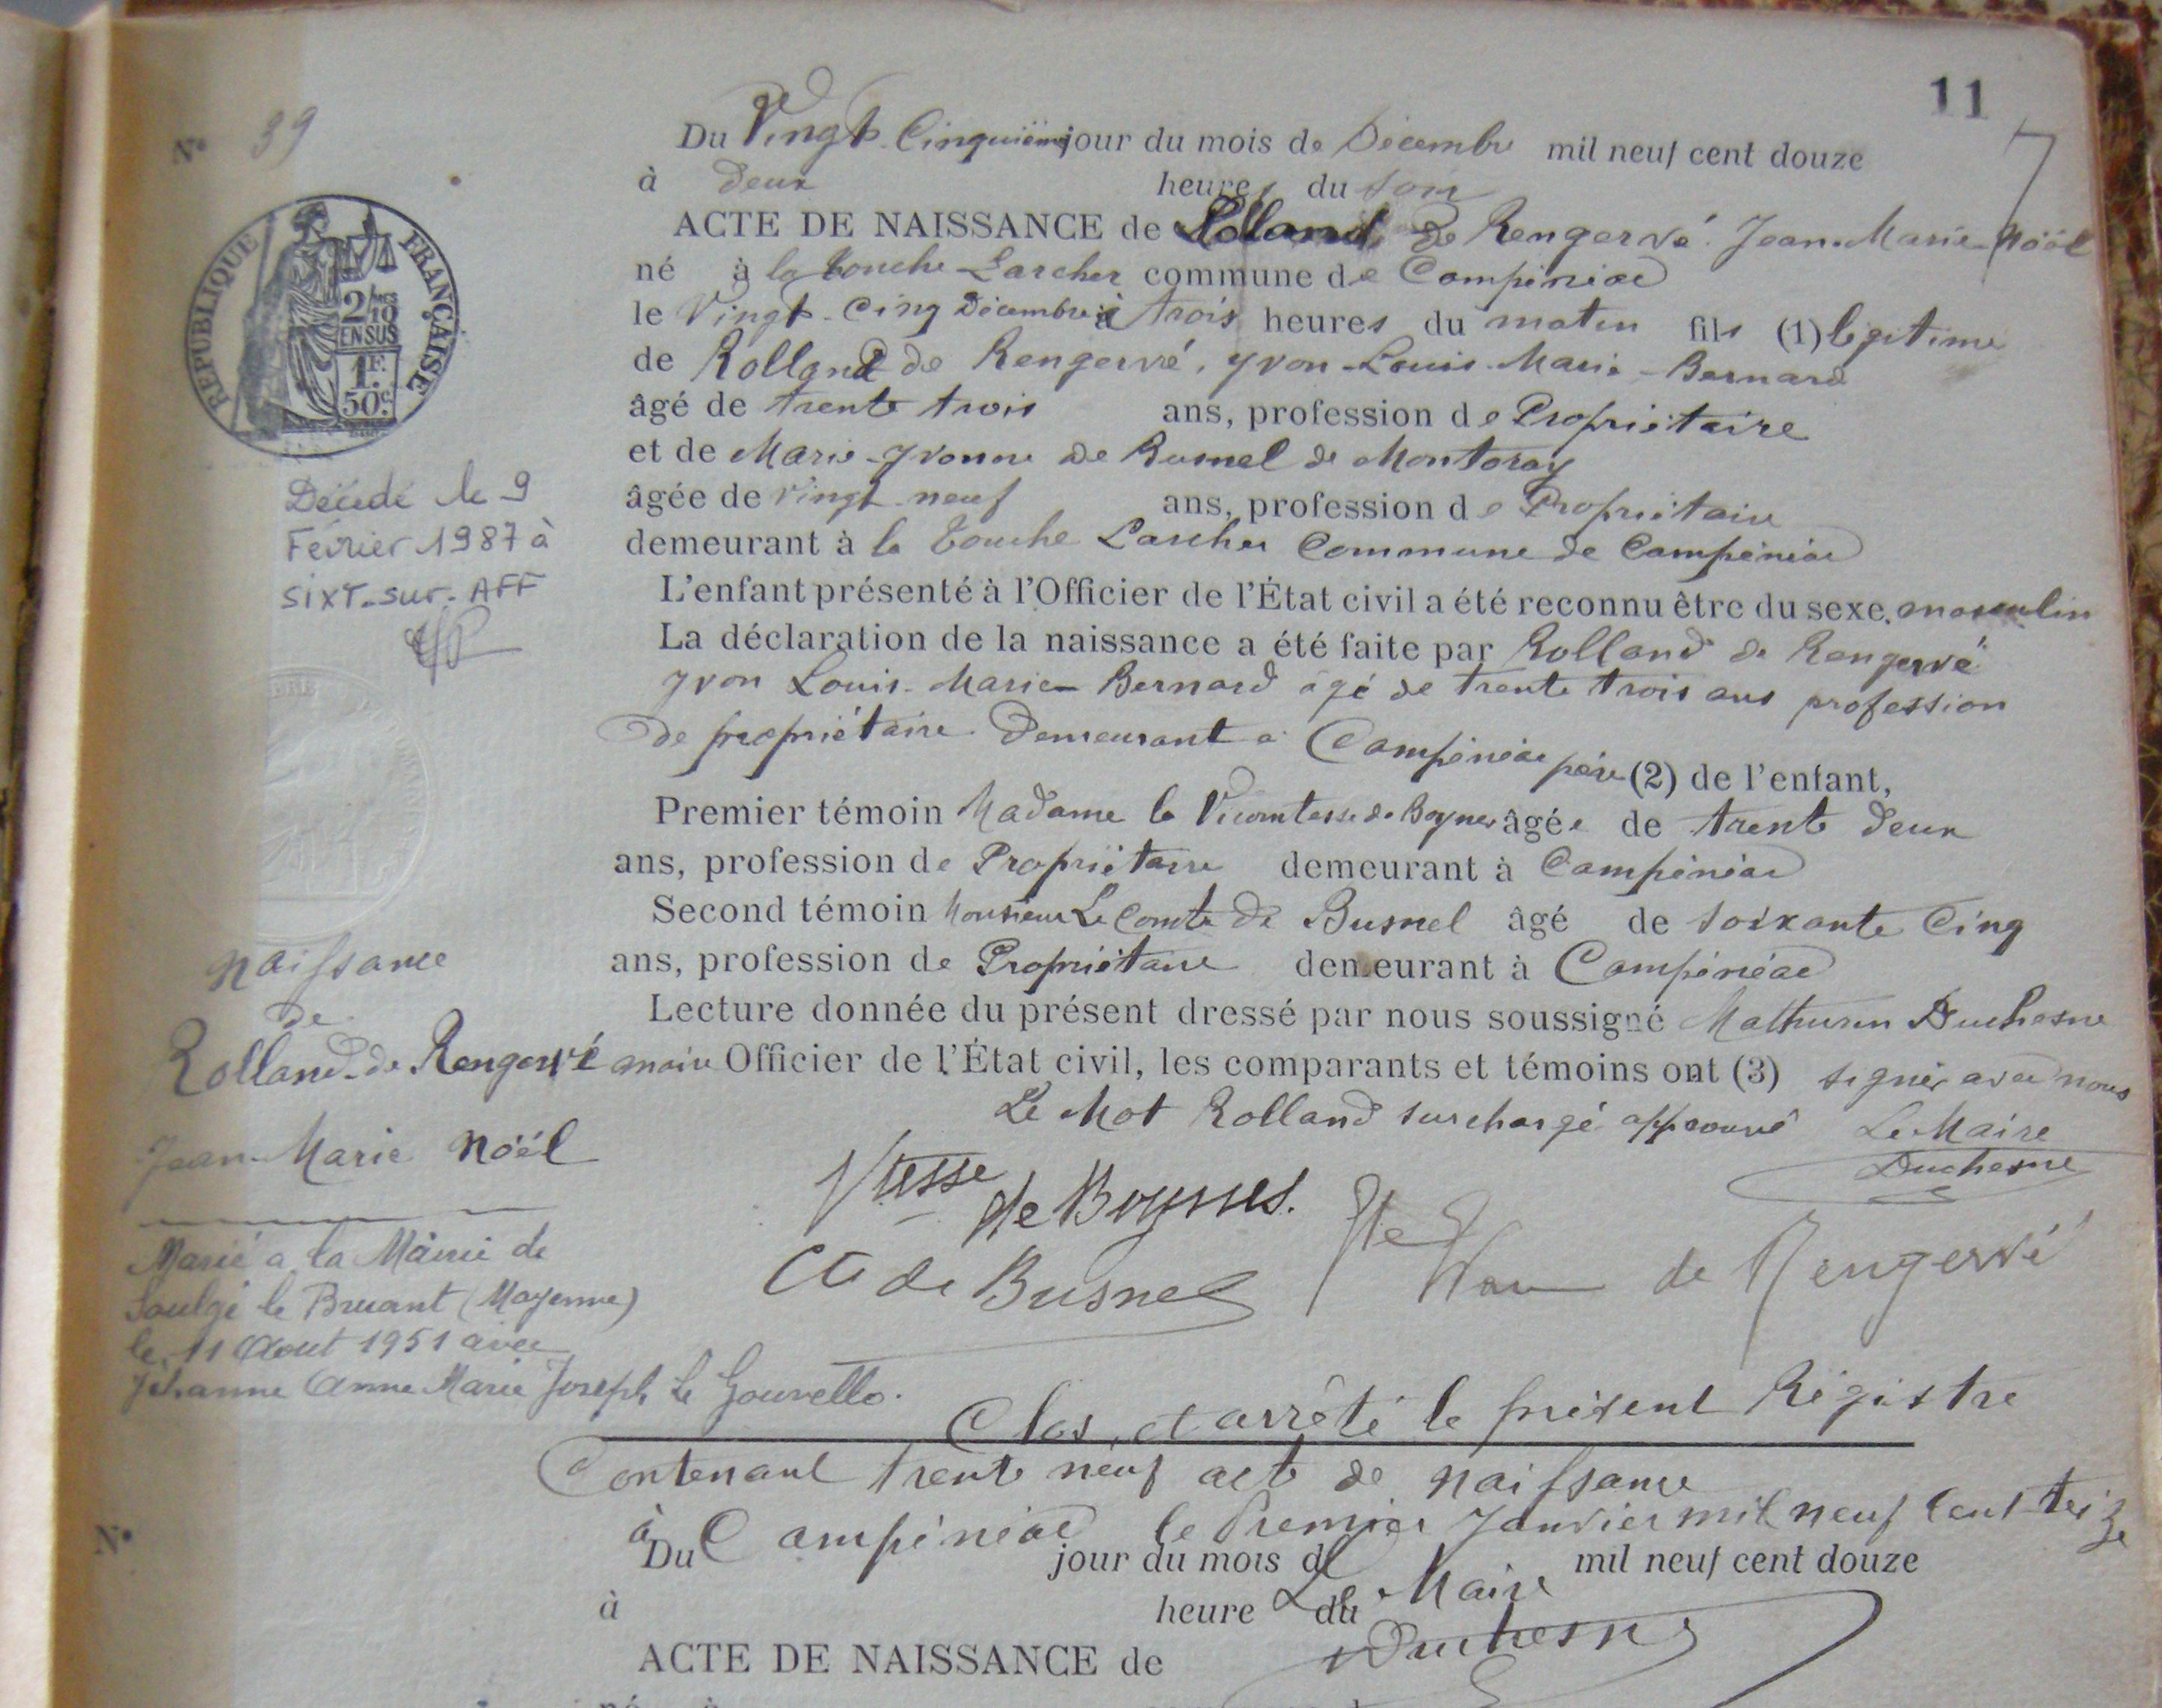 11
7
Nº 39
Du Vingt Cinquième jour du mois de Décembre mil neuf cent douze
à deux heures du soir
ACTE DE NAISSANCE de Rolland de Rengervé Jean-Marie-Nöël
né à la touche Larcher commune de Campénéac
le Vingt-cinq Décembre à trois heures du matin fils (1) légitime
de Rolland de Rengervé, yvon-Louis-Marie-Bernard
âgé de trente trois ans, profession de Propriétaire
et de Marie-Yvonne de Busnel de Montoray
âgée de vingt-neuf ans, profession de Propriétaire
demeurant à la Touche Larcher Commune de Campénéac
L'enfant présenté à l'Officier de l'État civil a été reconnu être du sexe masculin
La déclaration de la naissance a été faite par Rolland de Rengervé
yvon Louis-Marie-Bernard agé de trente trois ans profession
de propriétaire demeurant a Campénéac père (2) de l'enfant,
Premier témoin Madame la Vicomtesse de Boynes âgée de trente deux
ans, profession de Propriétaire demeurant à Campénéac
Second témoin Monsieur Le Comte de Busnel âgé de soixante Cinq
ans, profession de Propriétaire demeurant à Campénéac
Lecture donnée du présent dressé par nous soussigné Mathurin Duchesne
maire Officier de l'État civil, les comparants et témoins ont (3) signé avec nous
Le Mot Rolland surchargé approuvé Le Maire
Duchesne
Vtesse de Boynes.
Cte de Busnel
Yvon de Rengervé
RÉPUBLIQUE FRANÇAISE
2/10MES
EN SUS
1F.
50c.
Décédé le 9
Février 1987 à
SIXT-sur-AFF
naissance
de
Rolland-de Rengervé
Jean-Marie Nöél
Marié a la Mairie de
Soulgé le Bruant (Mayenne)
le 11 Aout 1951 avec
Jéhanne Anne Marie Joseph Le Gouvello.
Clos et arrêté le présent Régistre
Contenant trente neuf acte de naissance
à Campénéac le Premier Janvier mil neuf cent treize
Le Maire
Duchesne
Nº
Du jour du mois d mil neuf cent douze
à heure du
ACTE DE NAISSANCE de
né à